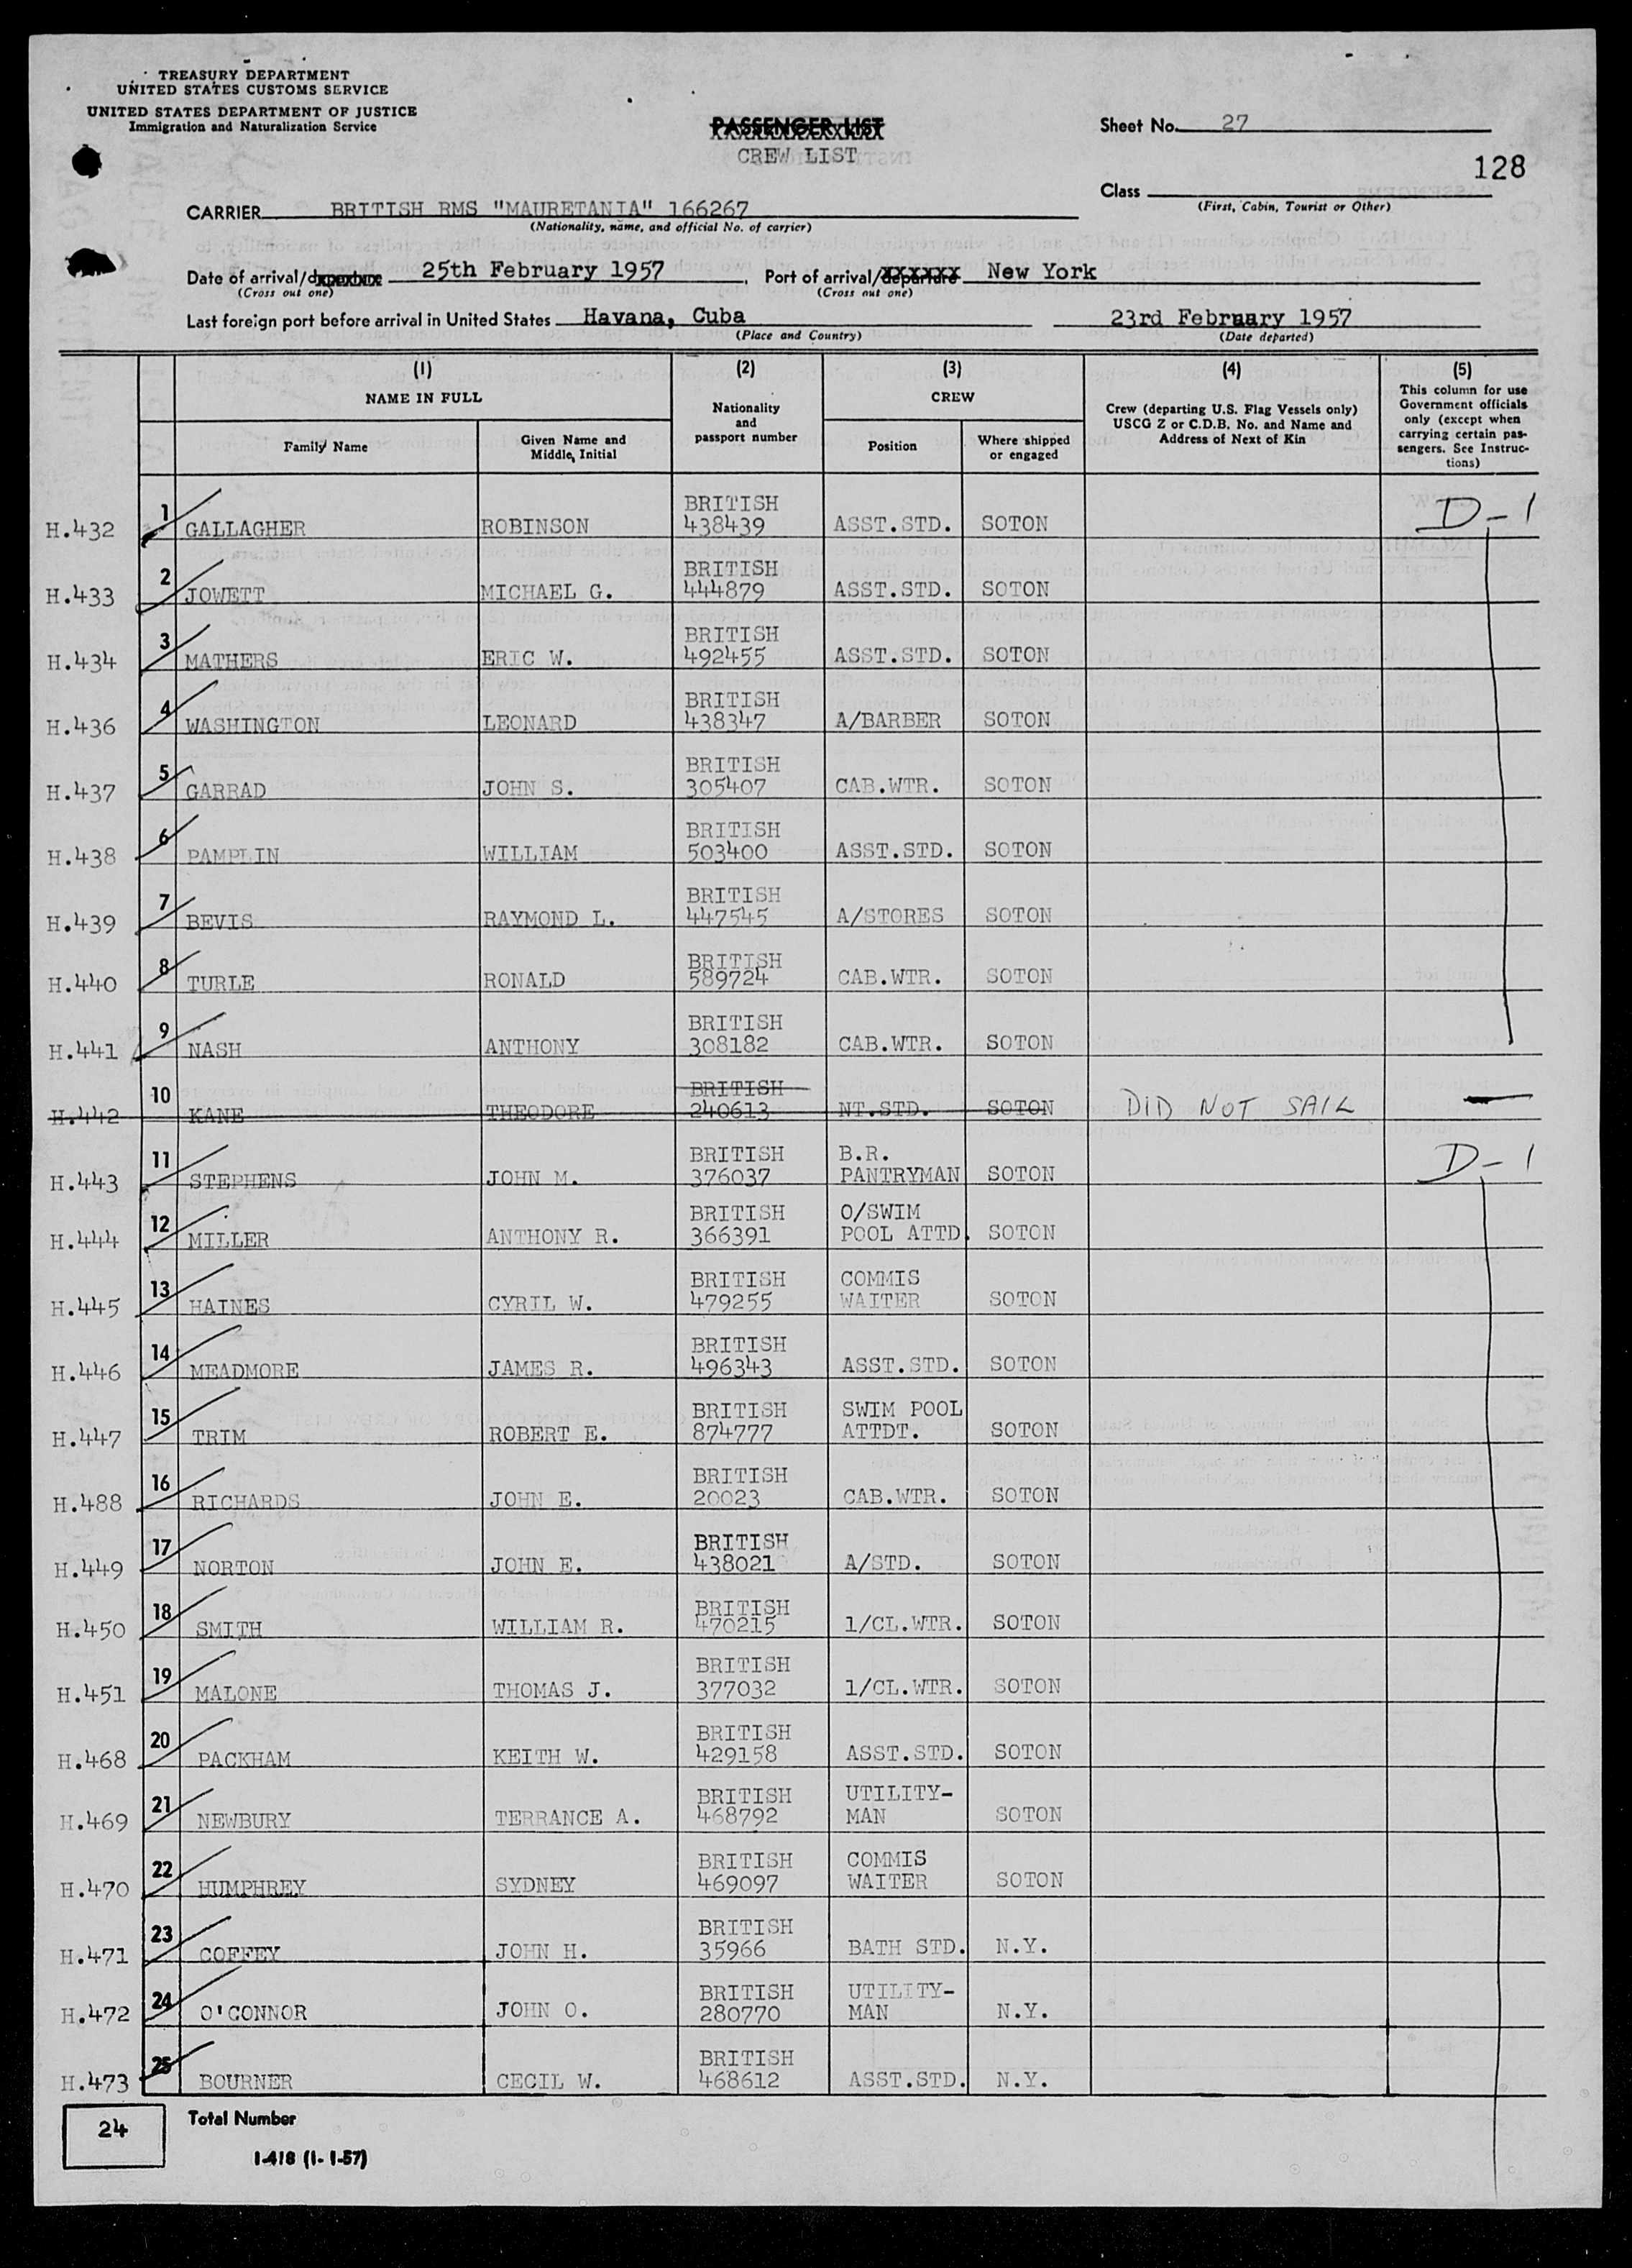 TREASURY DEPARTMENT
UNITED STATES CUSTOMS SERVICE
UNITED STATES DEPARTMENT OF JUSTICE
Immigration and Naturalization Service
PASSENGER LIST
CREW LIST
Sheet No. 27
128
Class
(First, Cabin, Tourist or Other)
CARRIER BRITISH RMS "MAURETANIA" 166267
(Nationality, name, and official No. of carrier)
Date of arrival/departure 25th February 1957 Port of arrival/departure New York
(Cross out one) (Cross out one)
Last foreign port before arrival in United States Havana, Cuba 23rd February 1957
(Place and Country) (Date departed)
(1) (2) (3) (4) (5)
NAME IN FULL Nationality and passport number CREW Crew (departing U.S. Flag Vessels only) USCG Z or C.D.B. No. and Name and Address of Next of Kin This column for use Government officials only (except when carrying certain passengers. See Instructions)
Family Name Given Name and Middle Initial Position Where shipped or engaged
H.432 1 GALLAGHER ROBINSON BRITISH 438439 ASST.STD. SOTON D-1
H.433 2 JOWETT MICHAEL G. BRITISH 444879 ASST.STD. SOTON
H.434 3 MATHERS ERIC W. BRITISH 492455 ASST.STD. SOTON
H.436 4 WASHINGTON LEONARD BRITISH 438347 A/BARBER SOTON
H.437 5 GARRAD JOHN S. BRITISH 305407 CAB.WTR. SOTON
H.438 6 PAMPLIN WILLIAM BRITISH 503400 ASST.STD. SOTON
H.439 7 BEVIS RAYMOND L. BRITISH 447545 A/STORES SOTON
H.440 8 TURLE RONALD BRITISH 589724 CAB.WTR. SOTON
H.441 9 NASH ANTHONY BRITISH 308182 CAB.WTR. SOTON
H.442 10 KANE THEODORE BRITISH 240613 NT.STD. SOTON DID NOT SAIL —
H.443 11 STEPHENS JOHN M. BRITISH 376037 B.R. PANTRYMAN SOTON D-1
H.444 12 MILLER ANTHONY R. BRITISH 366391 O/SWIM POOL ATTD. SOTON
H.445 13 HAINES CYRIL W. BRITISH 479255 COMMIS WAITER SOTON
H.446 14 MEADMORE JAMES R. BRITISH 496343 ASST.STD. SOTON
H.447 15 TRIM ROBERT E. BRITISH 874777 SWIM POOL ATTDT. SOTON
H.488 16 RICHARDS JOHN E. BRITISH 20023 CAB.WTR. SOTON
H.449 17 NORTON JOHN E. BRITISH 438021 A/STD. SOTON
H.450 18 SMITH WILLIAM R. BRITISH 470215 1/CL.WTR. SOTON
H.451 19 MALONE THOMAS J. BRITISH 377032 1/CL.WTR. SOTON
H.468 20 PACKHAM KEITH W. BRITISH 429158 ASST.STD. SOTON
H.469 21 NEWBURY TERRANCE A. BRITISH 468792 UTILITY-MAN SOTON
H.470 22 HUMPHREY SYDNEY BRITISH 469097 COMMIS WAITER SOTON
H.471 23 COFFEY JOHN H. BRITISH 35966 BATH STD. N.Y.
H.472 24 O'CONNOR JOHN O. BRITISH 280770 UTILITY-MAN N.Y.
H.473 25 BOURNER CECIL W. BRITISH 468612 ASST.STD. N.Y.
24 Total Number
I-418 (1-1-57)